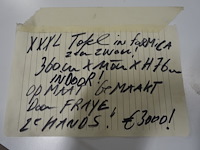 XXXL Tafel in FORMICA
360cm X H76cm
INDOOR!
OP MAAT GEMAAKT
Door FRAYE!
2e HANDS! €3000!